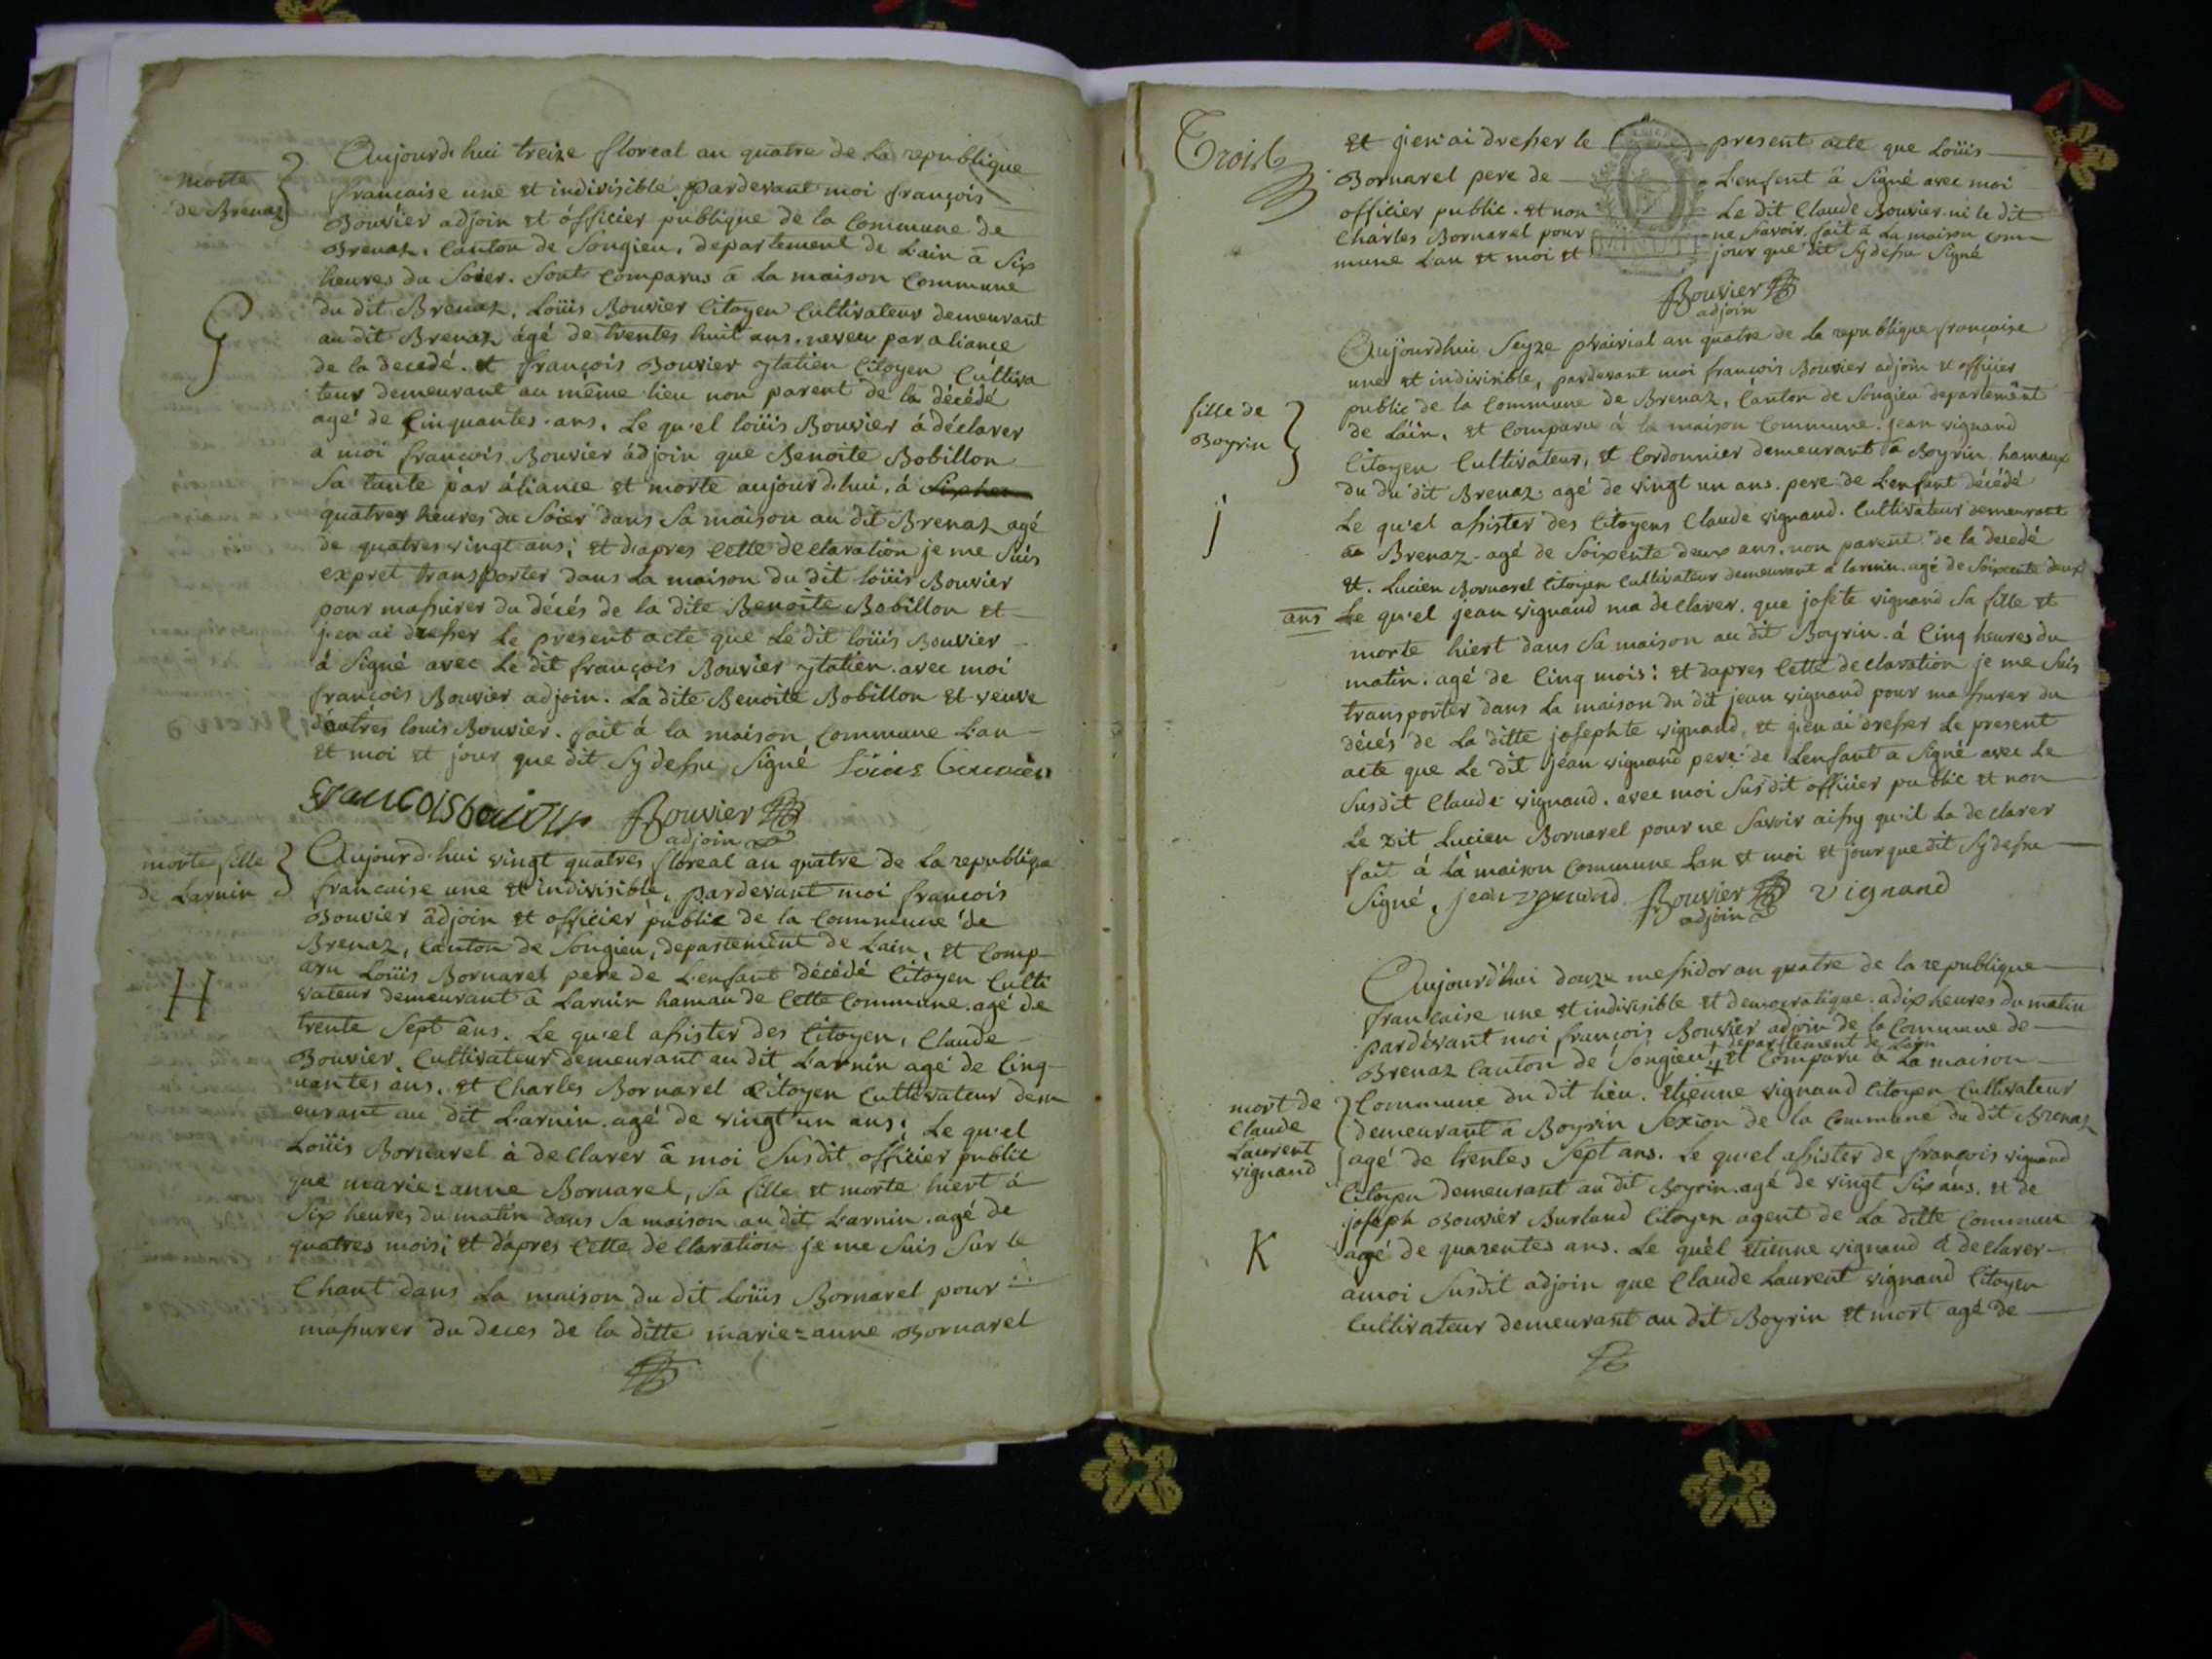 morte
de Brenaz
G
Aujourd'hui treize floreal an quatre de la republique
francaise une et indivisible. pardevant moi françois
Bouvier adjoin et officier publique de la Commune de
Brenaz. Canton de Songieu, departement de L'ain à Six
heures du Soier. Sont Comparus à la maison Commune
du dit Brenaz, Loüis Bouvier Citoyen Cultivateur demeurant
au dit Brenaz ágé de trentes huit ans. neveu par aliance
de la decedé. et françois Bouvier ytatien Citoyen Cultiva
teur demeurant au même lieu non parent de la décédé
agé de Cinquantes. ans. Le qu'el loüis Bouvier á déclarer
a moi françois Bouvier ádjoin que Benoite Bobillon
Sa tante pár áliance et morte aujourd'hui, á Six heur
quatres heures du Soier dans Sa maison au dit Brenaz agé
de quatres vingt ans; et d'apres Cette declaration je me Suis
expret transporter dans La maison du dit loüis Bouvier
pour massurer du décés de la dite Benoite Bobillon et
j'en ai dresser Le present acte que Le dit loüis Bouvier
á Signé avec Le dit françois Bouvier ytatien. avec moi
françois Bouvier adjoin. La dite Benoite Bobillon et veuve
d'autres louis Bouvier. fait á la maison Commune L'an
et moi et jour que dit Sy dessu Signé Loüis
francois Bouvier
adjoin
morte fille
de Larnin
H
Aujourd'hui vingt quatres floreal an quatre de La republiqu
francaise une et indivisible. pardevant moi francois
Bouvier âdjoin et officier public de la Commune de
Brenaz, Canton de Songieu, departemênt de Lain, et Comp-
aru Loüis Bornarel pere de L'enfant décédé Citoyen Culti
vateur demeurant â Larnin hamau de Cette Commune. agé de
trente Sept âns. Le qu'el assister des Citoyen, Claude
Bouvier, Cultivateur demeurant au dit Larnin agé de Cinq-
uantes ans. et Charles Bornarel Citoyen Cultivateur dem
eurant au dit L'arnin. agé de vingt un ans; Le qu'el
Loüis Bornarel à declarer â moi Susdit officier public
que marie=anne Bornarel, Sa fille et morte hiert à
Six heures du matin dans Sa maison au dit L'arnin. agé de
quatres mois; et d'apres Cette declaration je me Suis Sur le
Chant dans La maison du dit Loüis Bornarel pour
massurer du deces de la ditte marie=anne Bornarel
Trois
et j'en ai dresser le present acte que Loüis
Bornarel pere de L'enfent â Signé avec moi
officier public. et non Le dit Claude Bouvier. ni le dit
Charles Bornarel pour ne Savoir. fait à La maison com-
mune L'an et moi et jour que dit Sy dessu Signé
Bouvier
adjoin
fille de
Boyrin
j
Aujourdhui Seyze prairial an quatre de La republique française
une et indivisible, pardevant moi françois Bouvier adjoin et officier
public de la Commune de Brenaz, Canton de Songieu departemênt
de Láin. et Comparu á la maison Commune. jean vignand
Citoyen Cultivateur, et Cordonnier demeurant à Boyrin hamaux
du du dit Brenaz agé de vingt un ans. pere de L'enfant décédé
Le qu'el assister des Citoyens Claude vignand. Cultivateur demeurant
au Brenaz agé de Soixente deux ans. non parent de la decedé
et. Lucien Bornarel Citoyen Cultivateur demeurant a larnin. agé de Soixente deux
ans Le qu'el jean vignand ma declarer. que josete vignand Sa fille et
morte hiert dans Sa maison au dit Boyrin. á Cinq heures du
matin. agé de Cinq mois: et dapres Cette declaration je me Suis
transporter dans La maison du dit jean vignand pour massurer du
décés de La ditte josephte vignand, et j'en ai dresser Le present
acte que Le dit jean vignand pere de Lenfant a Signé avec Le
Susdit Claude vignand. avec moi Susdit officier public et non
Le dit Lucien Bornarel pour ne Savoir aissy qu'il La declarer
fait á Là maison Commune Lan et moi et jour que dit Sy dessu
Signé, jean vignand Bouvier vignand
adjoin
mort de
Claude
Laurent
vignand
K
Aujourd'hui douze messidor an quatre de la republique
francaise une et indivisible et democratique. a dix heures du matin
pardevant moi françois Bouvier adjoin de la Commune de
departement de Lain
Brenaz Canton de Songieu + et Comparu a La maison
Commune du dit lieu. etienne vignand Citoyen Cultivateur
demeurant à Boyrin Sexion de la Commune du dit Brenaz
agé de trentes Sept ans. Le qu'el assister de françois vignand
Citoyen demeurant au dit Boyrin. agé de vingt Six áns. et de
joseph Bouvier Burland Citoyen agent de La ditte Commun
agé de quarentes ans. Le quèl etienne vignand à declarer
amoi Susdit adjoin que Claude Laurent vignand Citoyen
Cultivateur demeurant au dit Boyrin et mort agé de